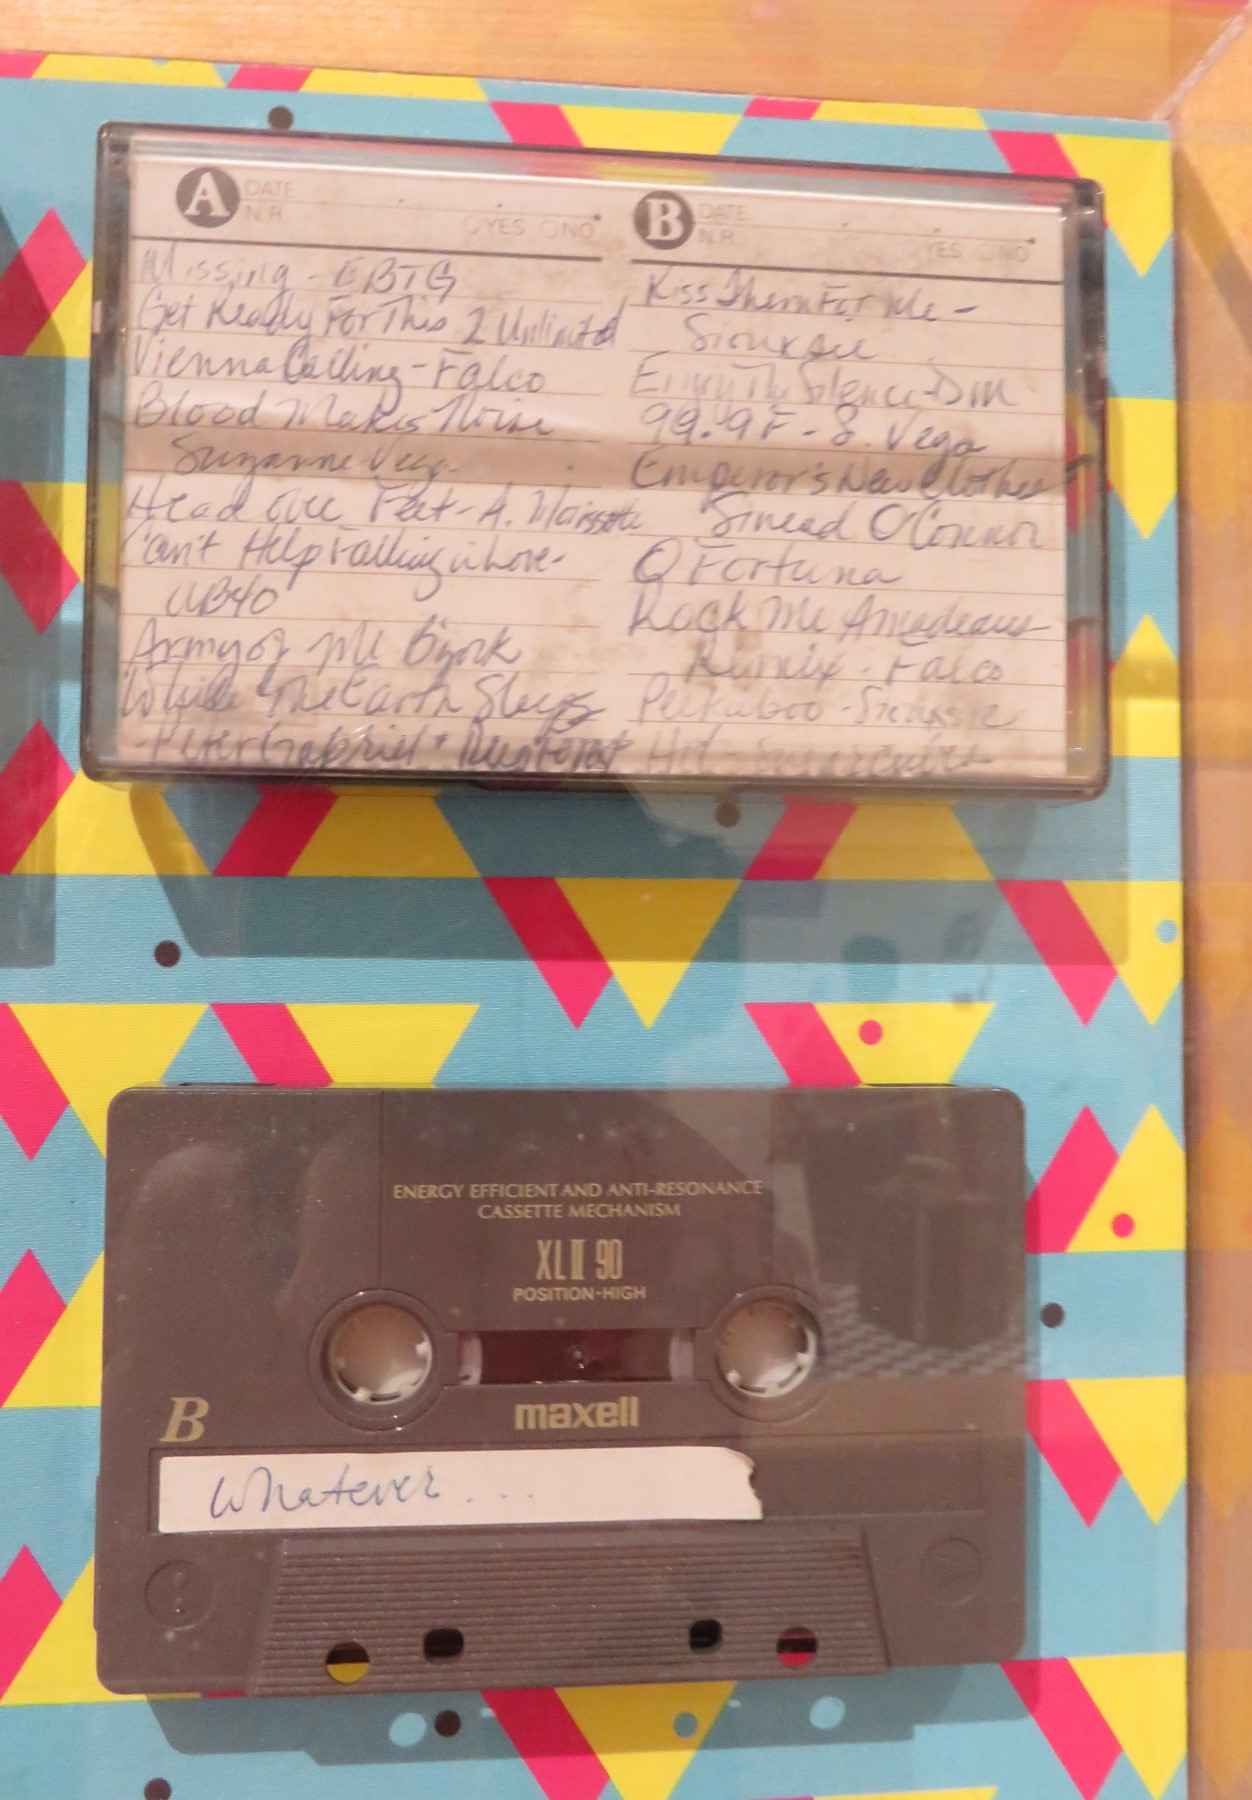 A DATE
N.R. YES NO
Missing - EBTG
Get Ready For This 2 Unlimited
Vienna Calling - Falco
Blood Makes Noise
Suzanne Vega
Head over Feet - A. Morissette
Can't Help Falling in Love -
UB40
Army of Me Bjork
While the Earth Sleeps
- Peter Gabriel + Deep Forest
B DATE
N.R. YES NO
Kiss Them For Me -
Siouxsie
Enjoy The Silence - DM
99.9 F - S. Vega
Emperor's New Clothes
Sinead O'Connor
O Fortuna
Rock Me Amadeaus
Remix - Falco
Peekaboo - Siouxsie
Hit - Sugarcubes
ENERGY EFFICIENT AND ANTI-RESONANCE
CASSETTE MECHANISM
XLII 90
POSITION·HIGH
maxell
B
Whatever . . .